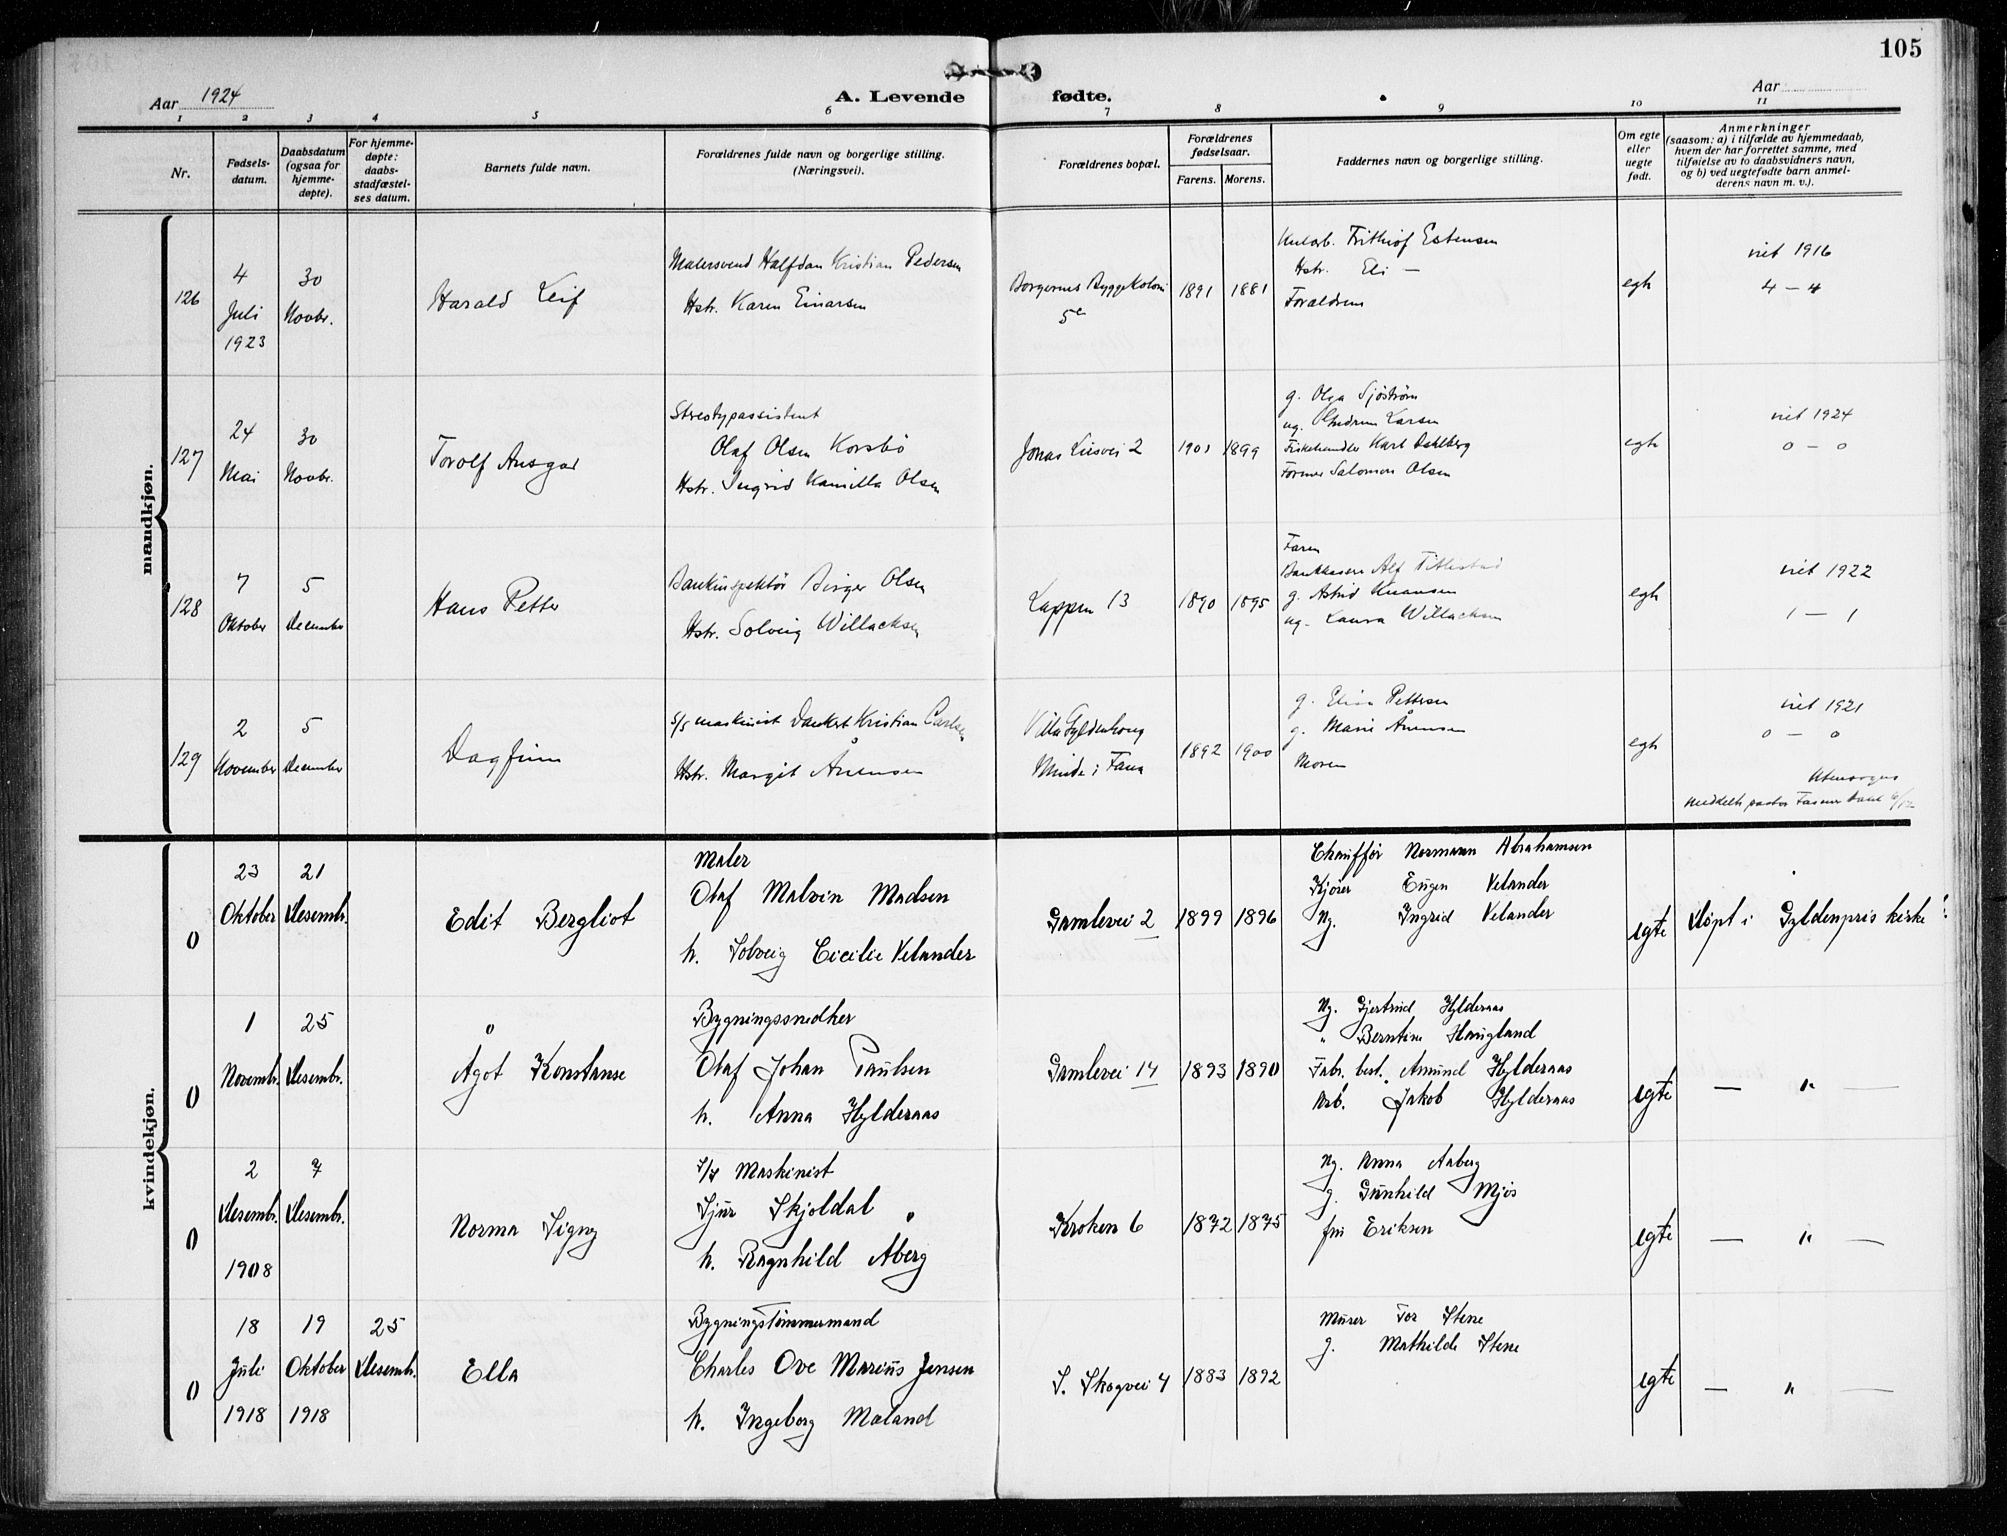 105
Aar 1924
A. Levende fødte.
Aar
1 2 3 4 5 6 7 8 9 10 11
Nr.
Fødsels-
datum.
Daabsdatum
(ogsaa for
hjemme-
døpte).
For hjemme-
døpte:
daabs-
stadfæstel-
ses datum.
Barnets fulde navn.
Forældrenes fulde navn og borgerlige stilling.
(Næringsvei).
Forældrenes bopæl.
Forældrenes
fødselsaar.
Farens. Morens.
Faddernes navn og borgerlige stilling.
Om egte
eller
uegte
født.
Anmerkninger
(saasom: a) i tilfælde av hjemmedaab,
hvem der har forrettet samme, med
tilføielse av to daabsvidners navn,
og b) ved uegtefødte barn anmel-
derens navn m. v.).
mandkjøn.
126
4
Juli
1923
30
Novbr.
Harald Leif
Malersvend Halfdan Kristian Pedersen
Hstr. Karen Einarsen
Borgernes Byggekoloni
5c
1891 1881
Frithiof Estensen
Hstr. Eli —
Forældrene
egte
viet 1916
4 — 4
127
24
Mai
30
Novbr.
Torolf Ansgar
Streotypassistent
Olaf Olsen Korsbø
Hstr. Ingrid Kamilla Olsen
Jonas Liesvei 2
1901 1899
g. Olga Sjöström
ug. Gudrun Larsen
Fiskehandler Karl Dahlberg
Former Salomon Olsen
egte
viet 1924
0 — 0
128
7
Oktober
5
December
Hans Petter
Bankinspektør Birger Olsen
Hstr. Solveig Willachsen
Lappen 13
1890 1895
Faren
Bankkasserer Alf
g. Astrid Knausen
ug. Laura Willachsen
egte
viet 1922
1 — 1
129
2
November
5
December
Dagfinn
s/s maskinist Dankert Kristian Carlsen
Hstr. Margit Årensen
Villa Gyldenhaug
Minde i Fana
1892 1900
g. Elisa Pettersen
g. Marie Årensen
Moren
egte
viet 1921
0 — 0
Utensogns
meddelt pastor
kvindekjøn.
0
23
Oktober
21
Desembr.
Edit Bergliot
Maler
Olaf Malvin Madsen
h. Solveig Cicilie Velander
Gamlevei 2
1899 1896
Chauffør Normann Abrahamsen
Kjører Eugen Velander
Ug. Ingrid Velander
egte
Døpt i Gyldenpris kirke
0
1
Novembr.
25
Desembr.
Ågot Konstanse
Bygningssnedker
Olaf Johan Paulsen
h. Anna Hyldernaas
Gamlevei 14
1893 1890
Ug. Gjertrud Hyldernaas
" Berntine Haugland
Fabr. best. Amund Hyldernaas
Arb. Jakob Hyldernaas
egte
— " —
0
2
Desembr.
1908
7
Desembr.
Norma Signy
S/S Maskinist
Sjur Skjoldal
h. Ragnhild Åberg
Kroken 6
1872 1875
Ug. Anna Aaberg
g. Gunhild Mjøs
fru Eriksen
egte
— " —
0
18
Juli
1918
19
Oktober
1918
25
Desembr.
Ella
Bygningstømmermand
Charles Ove Marius Jensen
h. Ingeborg Maland
S. Skogvei 4
1883 1892
Murer Tor Stene
g. Mathilde Stene
egte
— " —